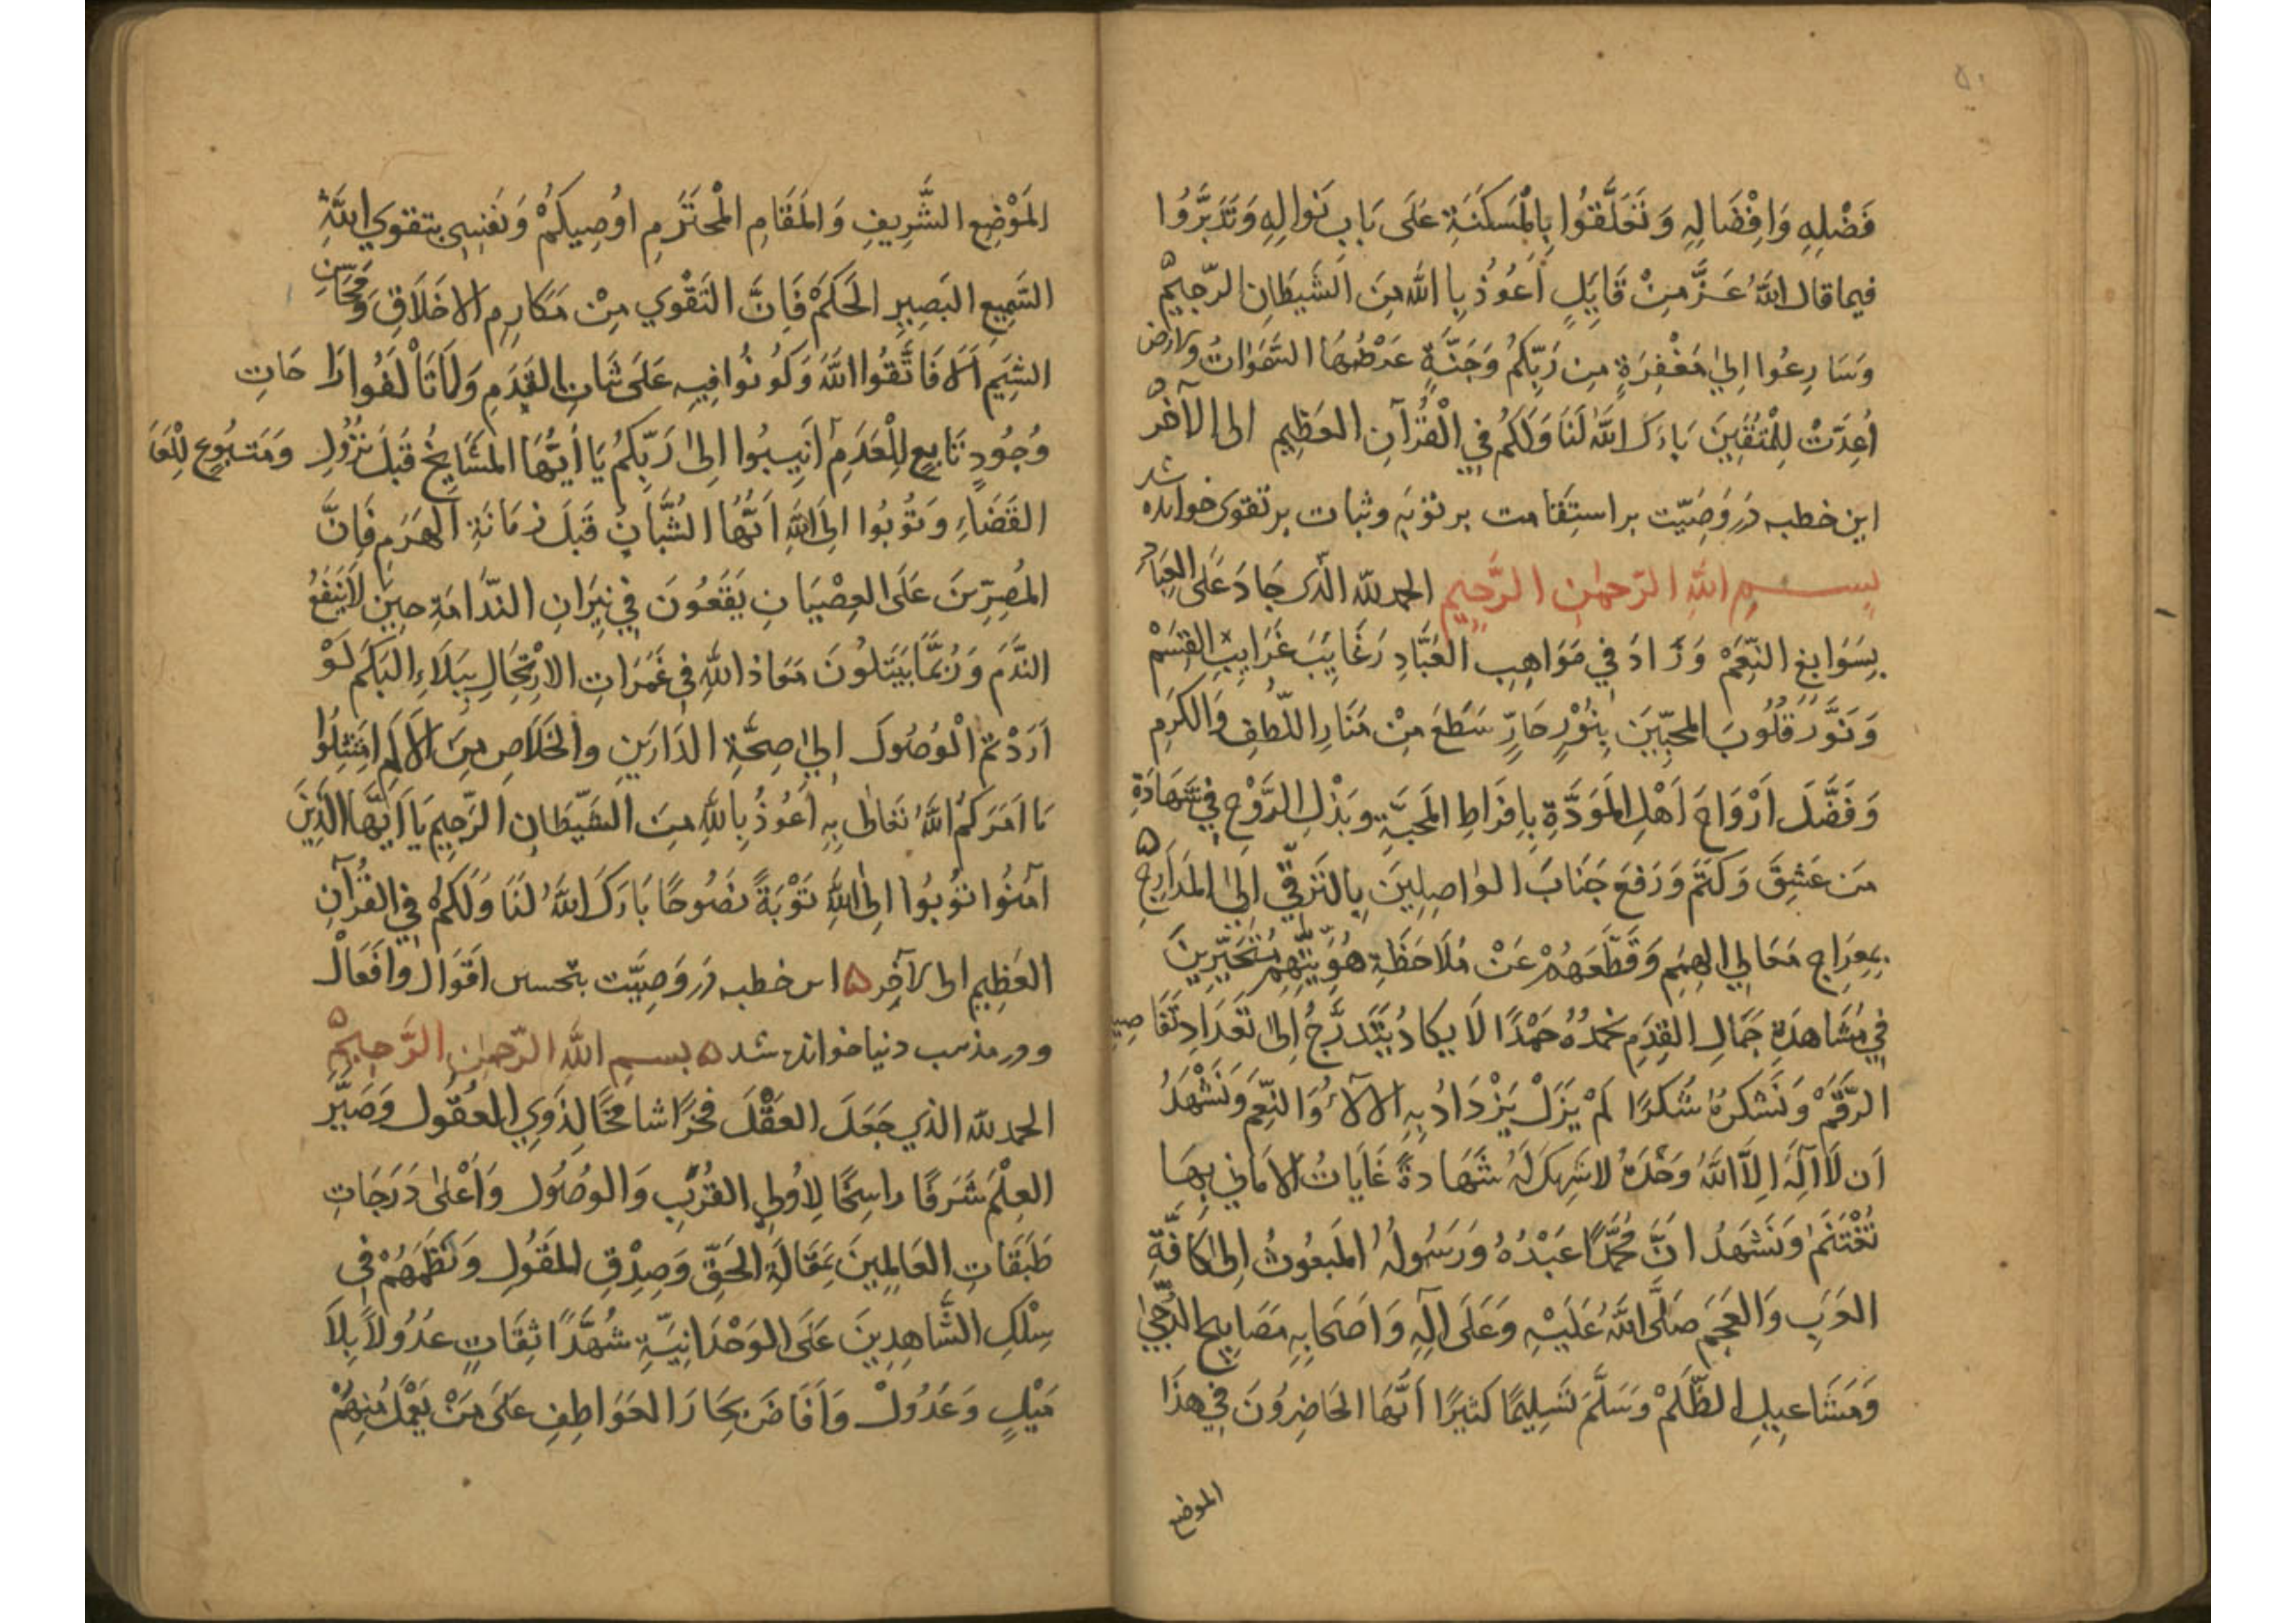 ۵۰
فَضْلِهِ وَاِفْضَالِهِ وَتَعَلَّقُوا بِالْمَسْكَنَةِ عَلَى بَابِ نَوَالِهِ وَتَدَبَّرُوا
فيما قال اللهُ عَزَّ مِنْ قَايِلٍ اَعُوذُ بِاللهِ مِنَ الشَّيطَانِ الرَّجِيمْ ۵
وَسَارِعُوا اِلىٰ مَغْفِرَةٍ مِن رَبِّكُمْ وَجَنَّةٍ عَرْضُهَا السَّمَوَاتُ وَالارض
اُعِدَّتْ لِلْمُتَّقِينَ بَارَكَ اللهُ لَنَا وَلَكُمْ فِي الْقُرْآنِ العَظِيمِ الى الآخر ۵
این خطبه دَر وَصِیّت بر استِقامت بر توبَه وثبات بر تقوی خوانده شد
بِسْمِ اللهِ الرَّحمٰنِ الرَّحِيمِ الحمد لله الّذى جَادَ عَلَى العِبَادِ
بِسَوَابِغِ النِّعَمْ وَزَادَ فِي مَوَاهِبِ العُبَّادِ رَغَايِبَ غَرَايِبِ القِسَمْ
وَنَوَّرَ قُلُوبَ المحِبِّينَ بِنُوْرٍ حَارٍّ سَطَعَ مِنْ مَنَارِ اللُّطفِ وَالكَرَمِ
وَفَضَّلَ اَرْوَاحَ اَهْلِ المَوَدَّةِ بِاِفرَاطِ المَحبَّةِ وَبَذْلِ الرَّوْحِ فِي شَهَادَةِ
مَن عَشِقَ وَكَتَمَ وَرَفعَ جَنَابَ الوٰاصِلِينَ بِالتَرقِّي اِلىٰ المَدَارِجِ ۵
بِمِعرَاجِ مَعَالِي الهِمَمِ وَقَطَّعَهُمْ عَنْ مُلَاحَظَةِ هُوِيَّتِهِم مُتَحَيِّرِينَ
فِي مُشَاهدَةِ جَمَالِ القِدَمِ نحمَدُهُ حَمْدًا لَا يكادُ يَتَدَرَّجُ اِلىٰ تَعدَادِ تَفَاصِيلِ
الرَّقَمْ وَنَشكرُهُ شُكرًا لَمْ يَزَلْ يَزْدَادُ بِهِ الآلاءُ وَالنِّعَمَ وَنَشْهَدُ
اَن لَا اِلٰهَ اِلاَّ اللهُ وَحْدَهُ لا شَرِيكَ لَهُ شَهَادةً غَايَاتُ الاَمَانِي بِهَا
تُغْتَنَمْ وَنَشهَدُ انَّ مُحَمَّدًا عَبْدُهُ وَرَسُولُهُ المَبعُوثُ اِلىٰ كَافَّةِ
العَرَبِ وَالعَجَمِ صَلَّى اللهُ عَلَيْهِ وَعَلَى آلِهِ وَاَصْحَابِهِ مَصَابِيحِ الدُّجىٰ
وَمَشَاعِيلِ الظُّلَمْ وَسَلَّمَ تَسلِيمًا كَثيرًا اَيُّهَا الحَاضِرُونَ فِي هذَا
الموضع
المَوْضِعِ الشَّرِيفِ وَالمَقَامِ المْحتَرَمِ اوُصِيكُمْ وَنَفسِي بتقوي اللهِ
السَّمِيعِ البَصِيرِ الحَكَمْ فَاِنَّ التَقْوي مِنْ مَكَارِمِ الاخلَاقِ وَمَحَاسِنِ
الشِيَمِ اَلَا فَاتَّقُوا اللهَ وَكُونُوا فِيهِ عَلَى ثَبَاتِ القَدَمِ وَلَا تَاْلَفُوا رَاحَاتِ
وُجُودٍ تَابِعٍ لِلْعَدَمِ اَنِيبُوا اِلىٰ رَبِّكُمْ يَا اَيُّهَا المَشَايخُ قَبلَ نُزُولِ وَمَتبُوعٍ لِلْعَنَا
القَضَاءِ وَتُوبُوا اِلى اللهِ اَيُّهَا الشُّبَّانُ قَبلَ زمَانَةِ الهَرَمِ فَاِنَّ
المُصِرِّينَ عَلَى العِصْيَانِ يَقَعُونَ فِي نِيَرانِ النّدَامَةِ حِينَ لَا يَنفَعُ
النَّدَمَ وَرُبَّمَا يَبتَلُونَ مَعَاذ اللهِ فِي غَمَرَاتِ الاِرْتِحَالِ بِبَلَاءِ البَكَمِ لَوْ
اَرَدْتمُ الْوُصُولَ اِلىٰ صِحَّةِ الدَارَينِ وَالخَلَاصِ مِنَ الاَلَمِ امتَثِلُوا
مَا اَمَرَكمُ اللهُ تعَالىٰ بِهِ اَعُوذُ بِاللهِ مِنَ الشَّيْطَانِ الرَّجِيمِ يَا اَيُّهَا الَّذِينَ
آمَنُوا تُوبُوا اِلىَ اللهِ تَوْبَةً نَصُوحًا بَارَكَ اللهُ لَنَا وَلَكمُ فِي القُرآنِ
العَظِيمِ الى الآخِرِ ۵ این خطبه دَر وَصِیَّت بتحسین اقوَال وَافعَال
و در مذمت دنیا خوانده شد ۵ بِسمِ اللهِ الرَّحمٰنِ الرَّحِيمْ ۵
الحمد لله الذي جَعَلَ العَقْلَ فخرًا شامخًا لِذَوِي العُقُولِ وَصَيَّرَ
العِلْمَ شَرَفًا راسِخًا لِاُولِى القُرْبِ وَالوصُولِ وَاَعْلىٰ دَرَجَاتِ
طَبَقَاتِ العَالِمِينَ بِمَقَالَةِ الحَقِّ وَصِدْقِ المَقُولِ وَنَظَمَهُمْ فِي
سِلْكِ الشَّاهِدِينَ عَلَى الوَحْدَانِيَّةِ شُهَّدًا ثِقَاتٍ عدُولاً بِلاَ
مَيْلٍ وَعَدُولْ وَاَفَاضَ بِحَارَ العَوَاطِفِ عَلىَ مَنْ يَعْمَلُ مِنْهُمْ